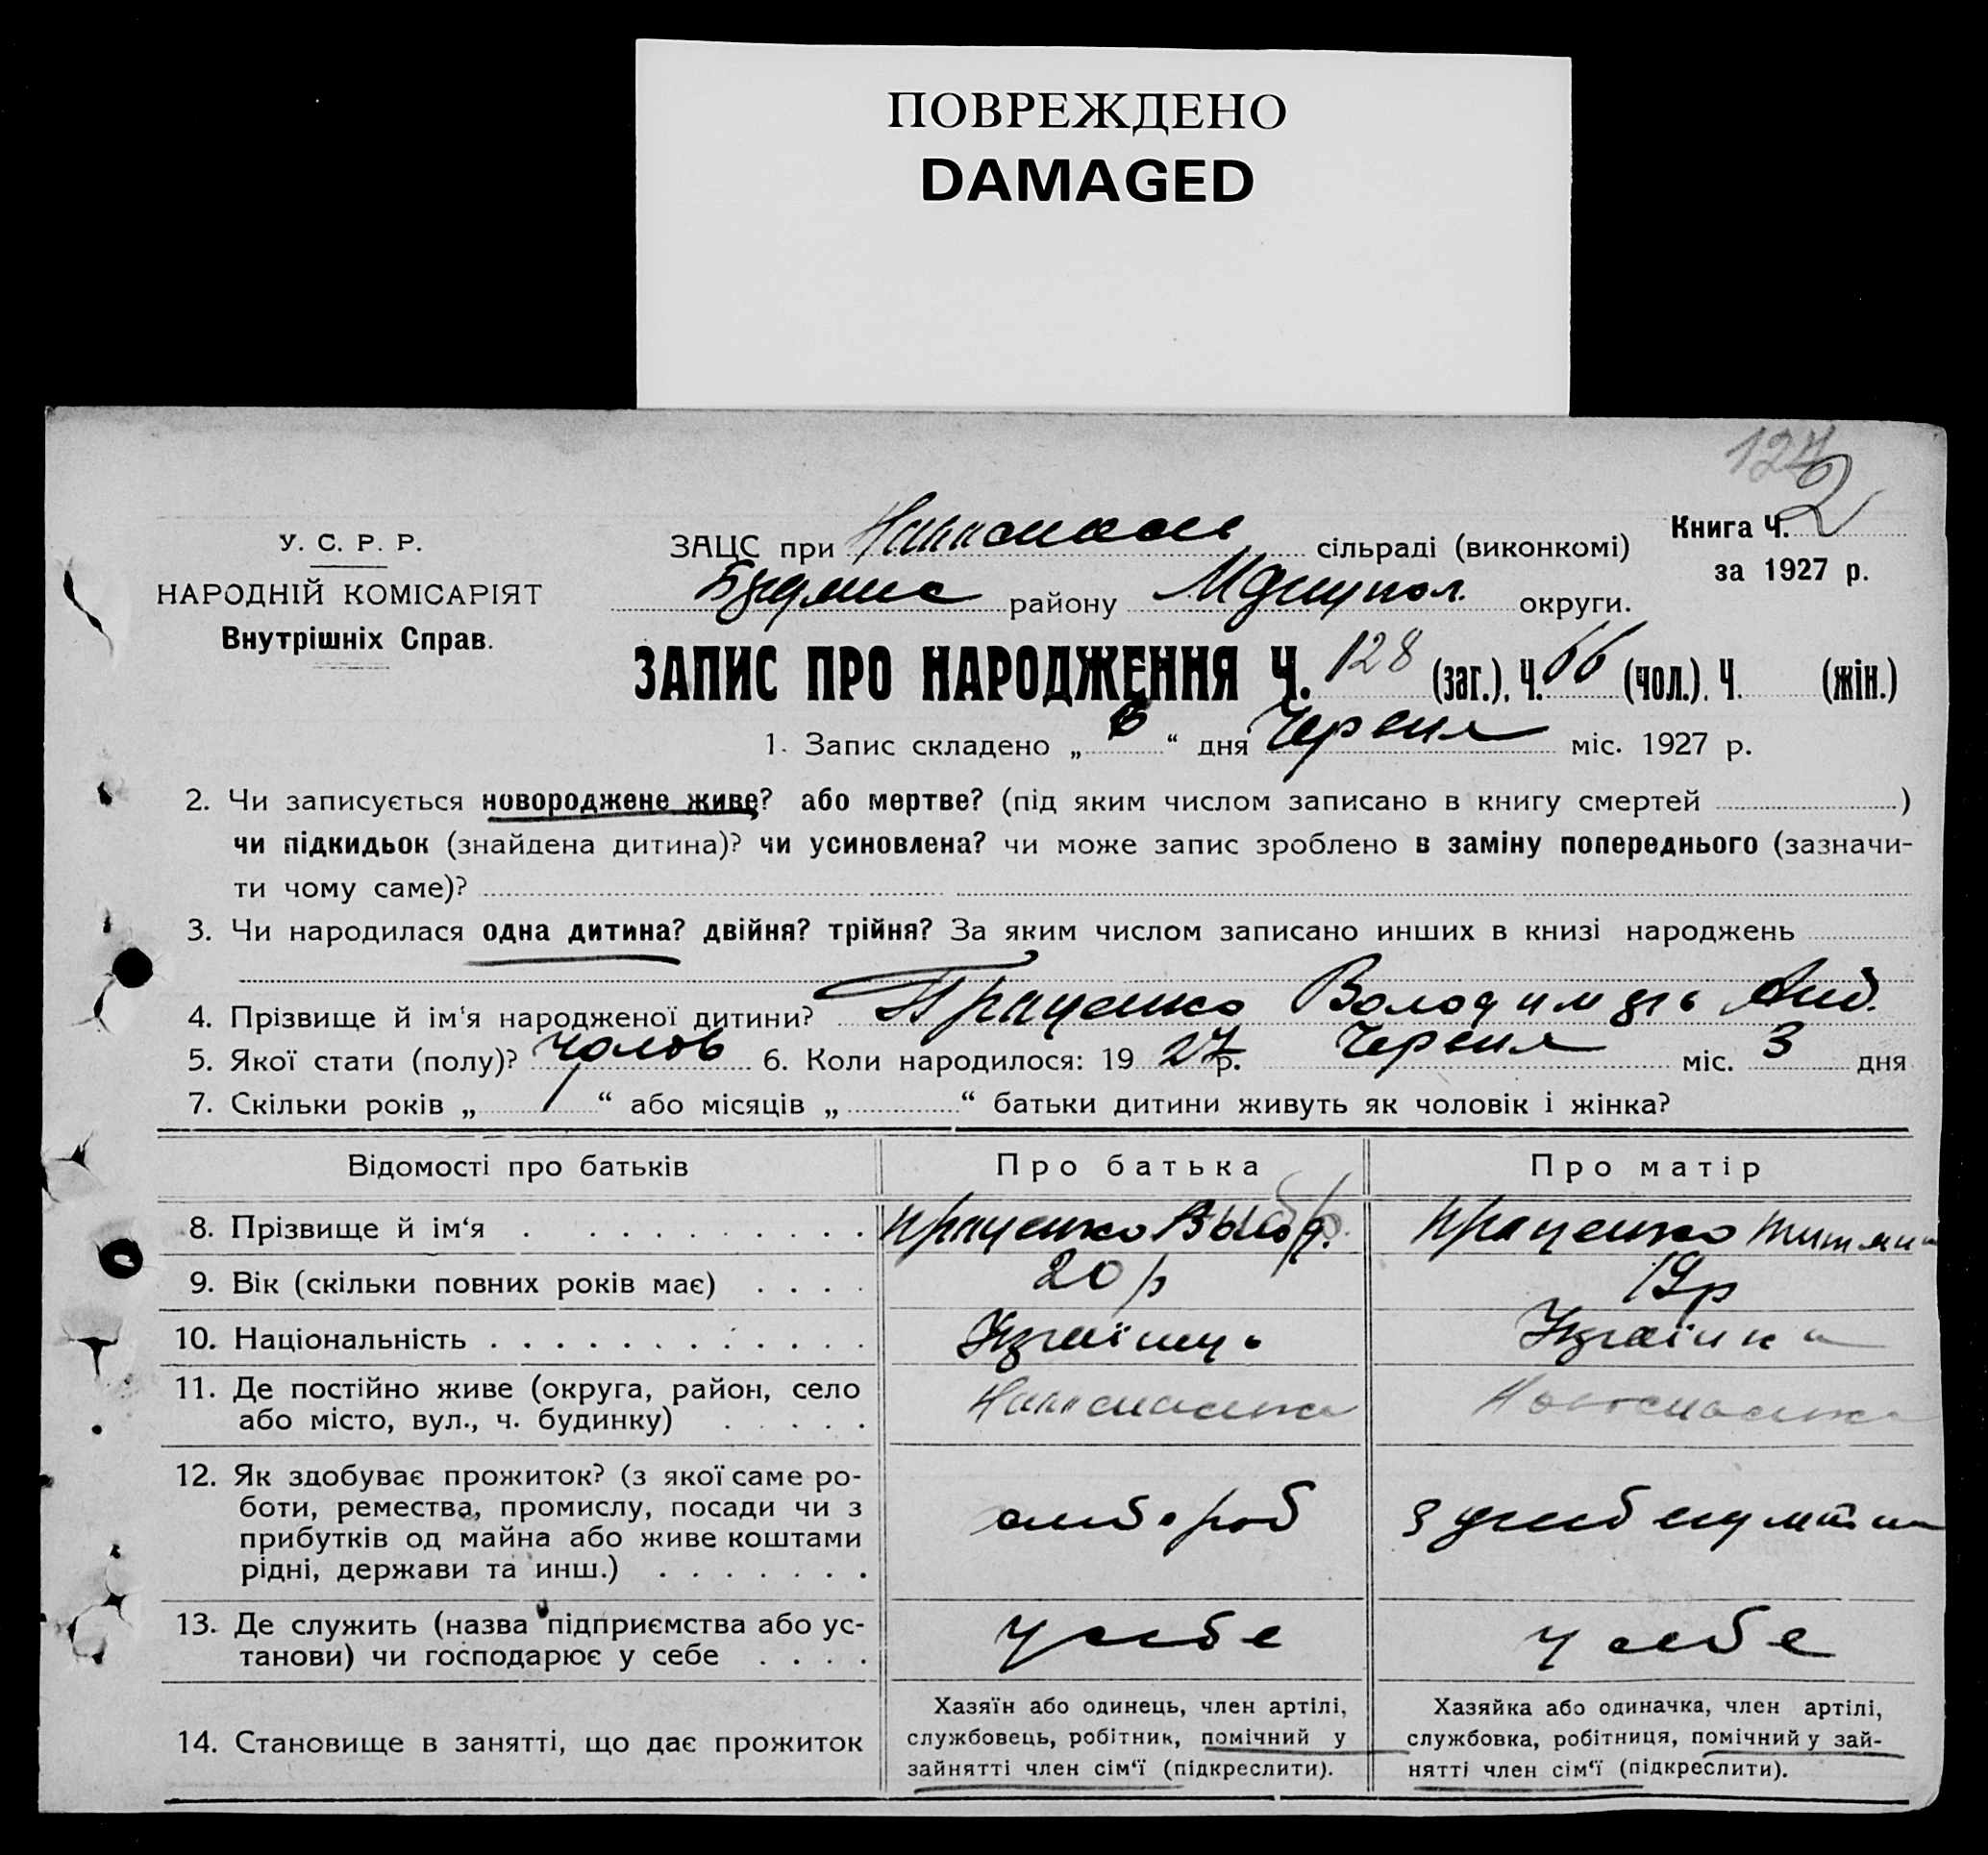 ПОВРЕЖДЕНО
DAMAGED
124
2
У. С. Р. Р.
НАРОДНІЙ КОМІСАРІЯТ
Внутрішніх Справ.
Книга Ч.
за 1927 р.
ЗАЦС при сільраді (виконкомі)
району округи.
ЗАПИС ПРО НАРОДЖЕННЯ Ч. 128 (заг.), Ч. 66 (чол.), Ч. (жін.)
1. Запис складено „ 6 “ дня Червня міс. 1927 р.
2. Чи записується новороджене живе? або мертве? (під яким числом записано в книгу смертей )
чи підкидьок (знайдена дитина)? чи усиновлена? чи може запис зроблено в заміну попереднього (зазначи-
ти чому саме)?
3. Чи народилася одна дитина? двійня? трійня? За яким числом записано инших в книзі народжень
4. Прізвище й ім‘я народженої дитини? Володимирь
5. Якої стати (полу)? чолов 6. Коли народилося: 19 27 р. Червня міс. 3 дня
7. Скільки років „ 1 “ або місяців „ “ батьки дитини живуть як чоловік і жінка?
Відомості про батьків Про батька Про матір
8. Прізвище й ім‘я
9. Вік (скільки повних років має) 20 р 19 р
10. Національність Українць Українка
11. Де постійно живе (округа, район, село
або місто, вул., ч. будинку)
12. Як здобуває прожиток? (з якої саме ро-
боти, ремества, промислу, посади чи з
прибутків од майна або живе коштами
рідні, держави та инш.)
13. Де служить (назва підприємства або ус-
танови) чи господарює у себе у себе у себе
14. Становище в занятті, що дає прожиток
Хазяїн або одинець, член артілі,
службовець, робітник, помічний у
зайнятті член сім‘ї (підкреслити).
Хазяйка або одиначка, член артілі,
службовка, робітниця, помічний у зай-
нятті член сім‘ї (підкреслити).